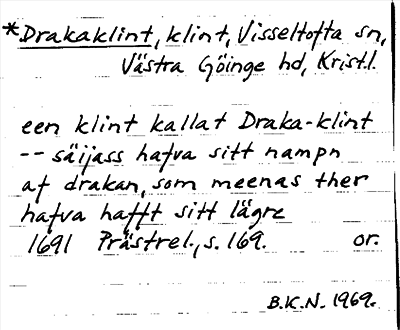 *Drakaklint, klint, Visseltofta sn,
Västra Göinge hd, Krist.l.
een klint kallat Draka-klint
-- säijass hafva sitt nampn
af drakan, som meenas ther
hafva hafft sitt lägre
1691 Prästrel., s. 169. or.
B.K.N. 1969.